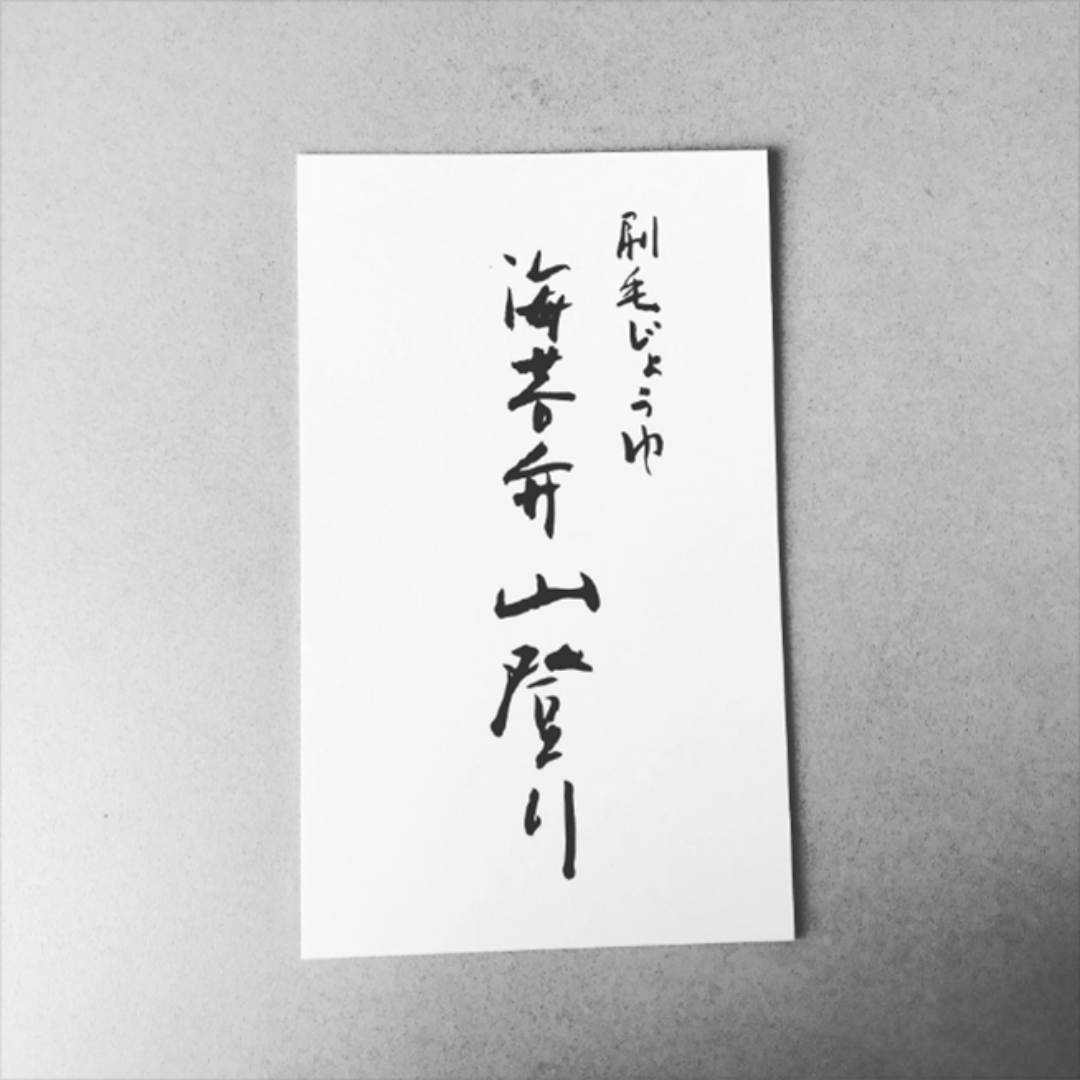 刷毛じょうゆ
海苔弁山登り